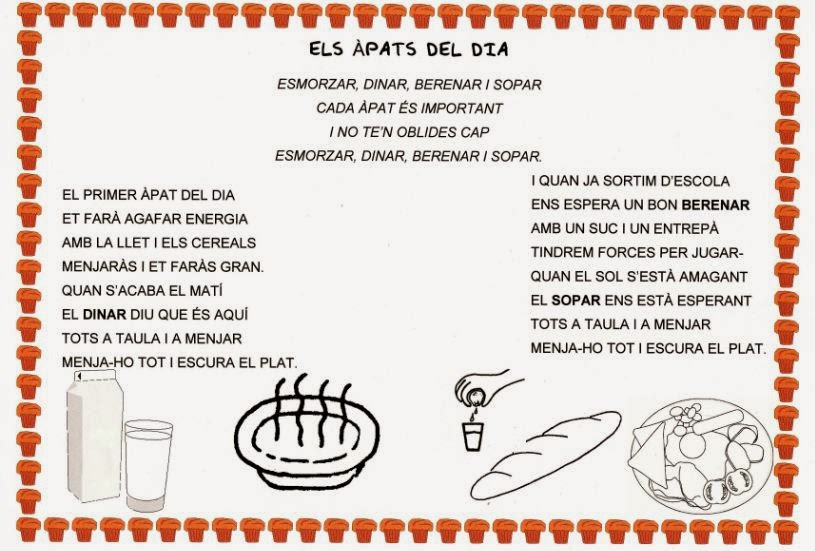 ELS ÀPATS DEL DIA
ESMORZAR, DINAR, BERENAR I SOPAR
CADA ÀPAT ÉS IMPORTANT
I NO TE'N OBLIDES CAP
ESMORZAR, DINAR, BERENAR I SOPAR.
EL PRIMER ÀPAT DEL DIA
ET FARÀ AGAFAR ENERGIA
AMB LA LLET I ELS CEREALS
MENJARÀS I ET FARÀS GRAN.
QUAN S'ACABA EL MATÍ
EL DINAR DIU QUE ÉS AQUÍ
TOTS A TAULA I A MENJAR
MENJA-HO TOT I ESCURA EL PLAT.
I QUAN JA SORTIM D'ESCOLA
ENS ESPERA UN BON BERENAR
AMB UN SUC I UN ENTREPÀ
TINDREM FORCES PER JUGAR-
QUAN EL SOL S'ESTÀ AMAGANT
EL SOPAR ENS ESTÀ ESPERANT
TOTS A TAULA I A MENJAR
MENJA-HO TOT I ESCURA EL PLAT.